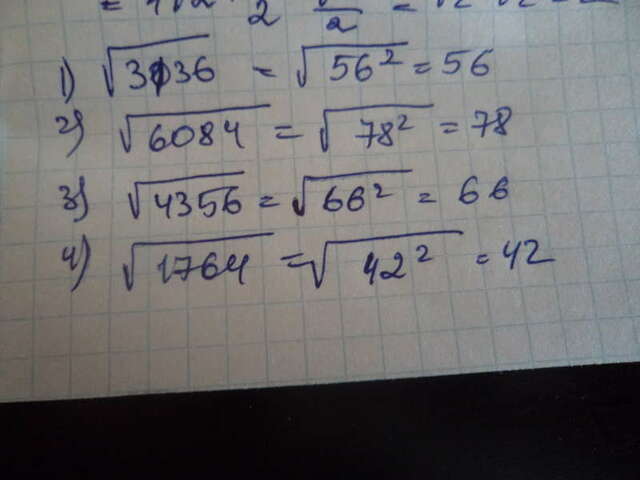 1) √3136 = √56² = 56
2) √6084 = √78² = 78
3) √4356 = √66² = 66
4) √1764 = √42² = 42